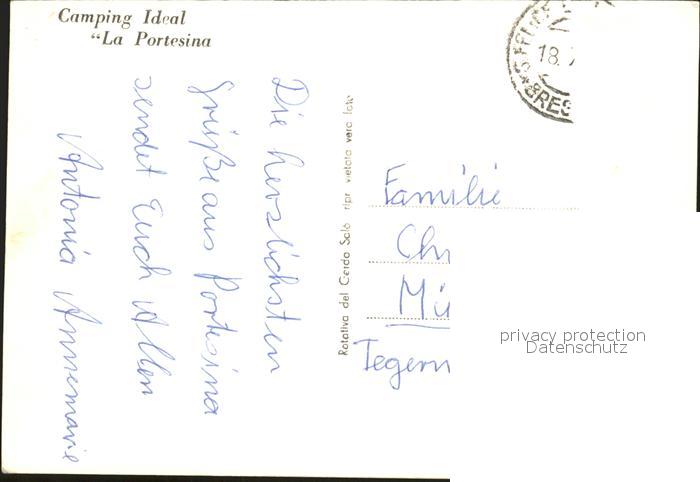 Camping Ideal
“La Portesina
S. FELICE
18.
BRES
Die herzlichsten
Grüße aus Portesina
sendet Euch Allen
Antonia Annemarie
Rotativa del Garda Salò ripr vietata vera foto
Familie
Ch
Mü
Tegern
privacy protection
Datenschutz